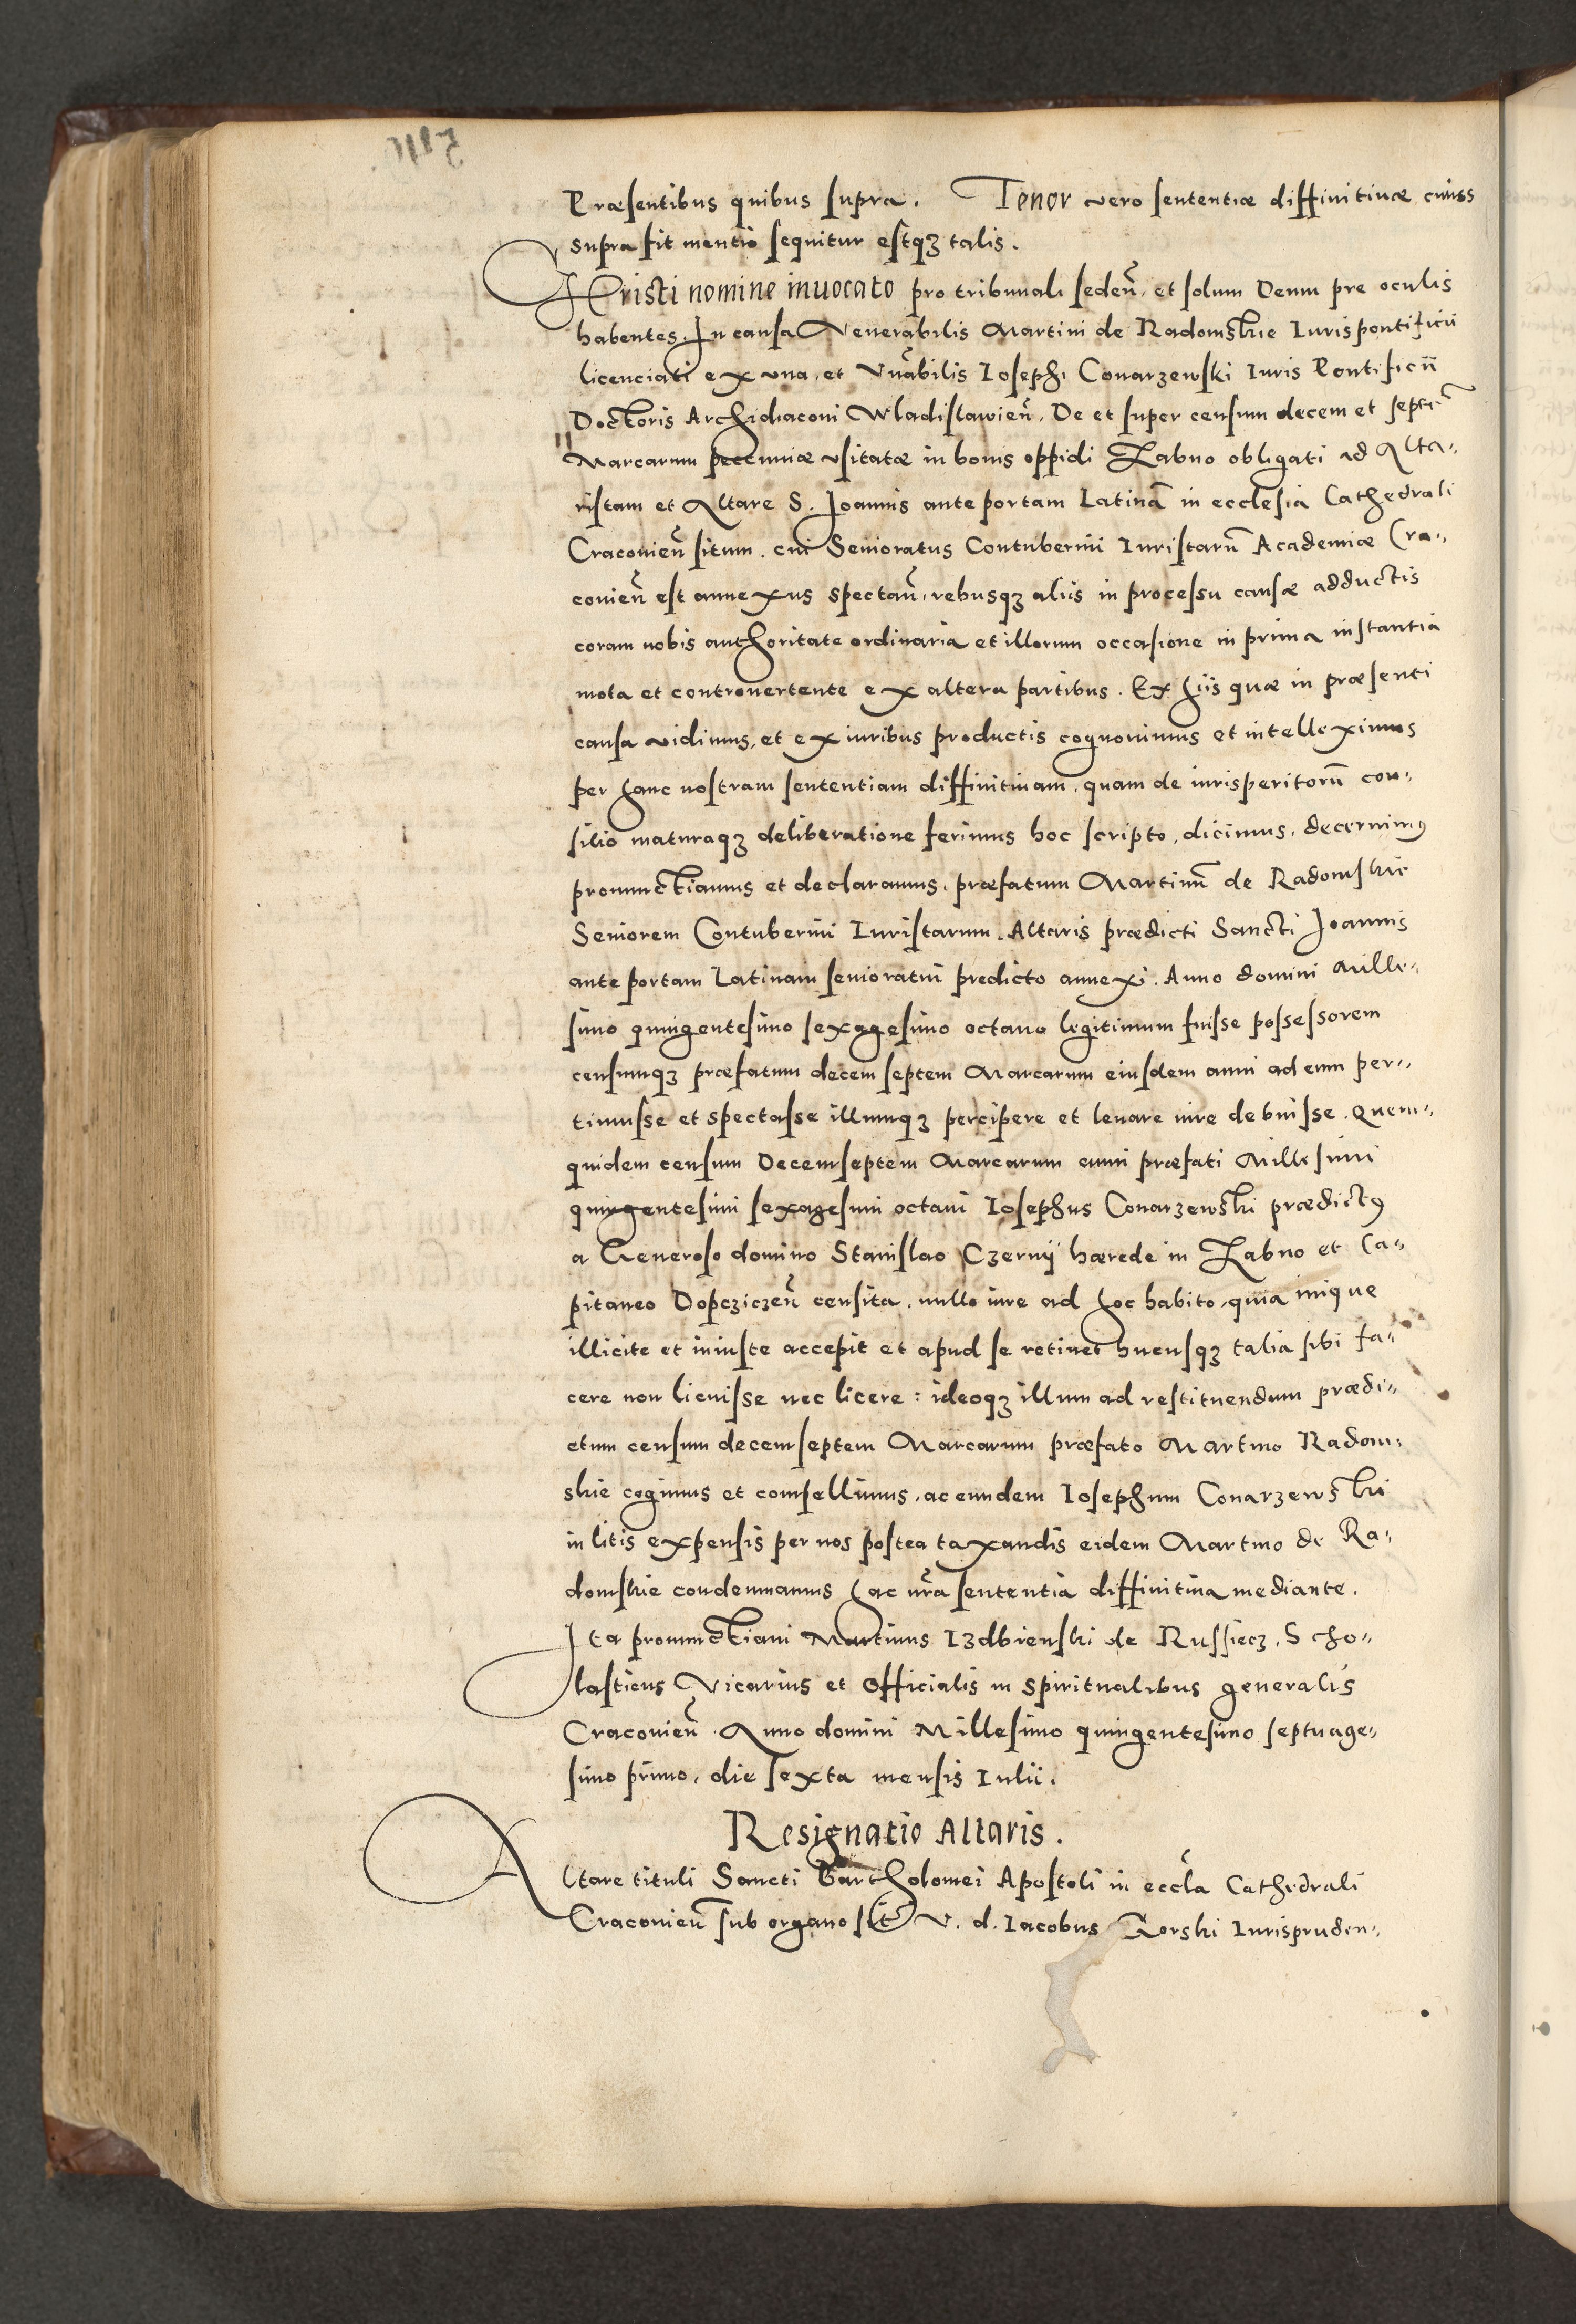 Præsentibus quibus supra. Tenor vero sententiæ diffinitiuæ, cuius
supra fit mentio sequitur estqꝫ talis.
Christi nomine inuocato pro tribunali sedeñ, et solum Deum pre oculis
habentes. In causa Venerabilis Martini de Radomskie Iuris pontificii
licenciati ex vna, et Vnãbilis Iosephi Conarzewski Iuris Pontificii
Doctoris Archidiaconi Wladislawieñ, De et super censum decem et septẽ
Marcarum pecuniæ vsitatæ in bonis oppidi Zabno obligati ad Alta-
ristam et Altare S. Joannis ante portam Latinã in ecclesia Cathedrali
Cracovieñ situm. cui Senioratus Contubernii Iuristarũ Academiæ Cra-
covieñ est annexus spectañ, rebusqꝫ aliis in processu causæ adductis
coram nobis authoritate ordinaria et illorum occasione in prima instantia
mota et controuertente ex altera partibus. Ex hiis quæ in præsenti
causa vidimus, et ex iuribus productis cognouimus et intelleximus
per hanc nostram sententiam diffinitiuam, quam de iurisperitorũ con-
silio maturaqꝫ deliberatione ferimus hoc scripto, dicimus, decernimꝰ
pronunctiamus et declaramus, præfatum Martinũ de Radomskie
Seniorem Contubernii Iuristarum, Altaris prædicti Sancti Joannis
ante portam Latinam senioratui predicto annexi. Anno domini Mille-
simo quingentesimo sexagesimo octauo legitimum fuisse possessorem
censumqꝫ præfatum decem septem Marcarum eiusdem anni ad eum per-
tinuisse et spectasse illumqꝫ percipere et leuare iure debuisse. Quem-
quidem censum Decemseptem Marcarum anni præfati Millesimi
quingentesimi sexagesimi octaui Iosephus Conarzewski prædictꝰ
a Generoso domino Stanislao Czernÿ hærede in Zabno et Ca-
pitaneo Dopcziczeñ censita, nullo iure ad hoc habito, quia inique
illicite et iniuste accepit et apud se retinet hucusqꝫ talia sibi fa-
cere non licuisse nec licere: ideoqꝫ illum ad restituendum prædi-
ctum censum decemseptem Marcarum præfato Martino Radom-
skie cogimus et compellimus, ac eundem Iosephum Conarzewski
in litis expensis per nos postea taxandis eidem Martino de Ra-
domskie condemnamus hac nr̃a sententia diffinitiua mediante.
Ita pronunctiaui Martinus Izdbienski de Russiecz, Scho-
lasticus Vicarius et Officialis in Spiritualibus generalis
Cracovieñ. Anno domini Millesimo quingentesimo septuage-
simo primo, die sexta mensis Iulii.
Resignatio Altaris.
Altare tituli Sancti Bartholomei Apostoli in eccl̃a Cathedrali
Cracovieñ sub organo sit̃ V. d. Iacobus Gorski Iurispruden-